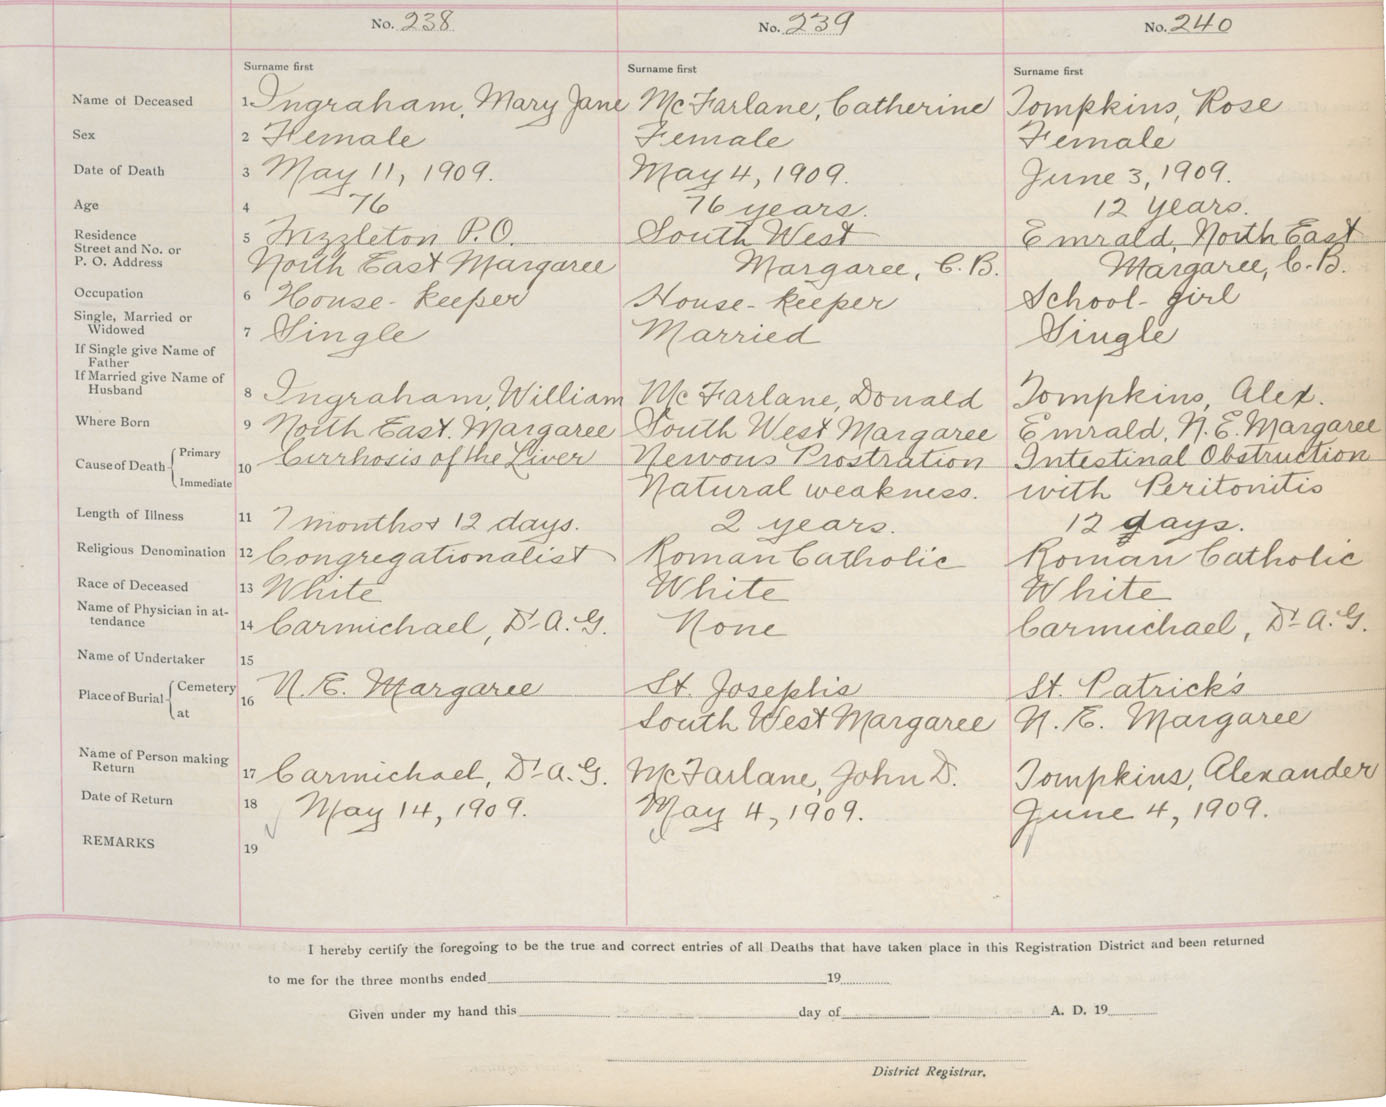 No. 238 No. 239 No. 240
Surname first Surname first Surname first
Name of Deceased 1 Ingraham, Mary Jane McFarlane, Catherine Tompkins, Rose
Sex 2 Female Female Female
Date of Death 3 May 11, 1909. May 4, 1909. June 3, 1909.
Age 4 76 76 years. 12 years.
Residence 5 Frizzleton P.O. South West Emrald, North East
Street and No. or
P. O. Address North East Margaree Margaree, C.B. Margaree, C.B.
Occupation 6 House-keeper House-keeper School-girl
Single, Married or
Widowed 7 Single Married Single
If Single give Name of
Father
If Married give Name of
Husband 8 Ingraham, William McFarlane, Donald Tompkins, Alex.
Where Born 9 North East. Margaree South West Margaree Emrald, N.E. Margaree
Cause of Death Primary 10 Cirrhosis of the Liver Nervous Prostration Intestinal Obstruction
Immediate Natural weakness. with Peritonitis
Length of Illness 11 7 months & 12 days. 2 years. 12 days.
Religious Denomination 12 Congregationalist Roman Catholic Roman Catholic
Race of Deceased 13 White White White
Name of Physician in at-
tendance 14 Carmichael, Dr A.G. None Carmichael, Dr A.G.
Name of Undertaker 15
Place of Burial Cemetery 16 N.E. Margaree St. Joseph's St. Patrick's
at South West Margaree N.E. Margaree
Name of Person making
Return 17 Carmichael, Dr A.G. McFarlane, John D. Tompkins, Alexander
Date of Return 18 May 14, 1909. May 4, 1909. June 4, 1909.
REMARKS 19
I hereby certify the foregoing to be the true and correct entries of all Deaths that have taken place in this Registration District and been returned
to me for the three months ended 19
Given under my hand this day of A. D. 19
District Registrar.